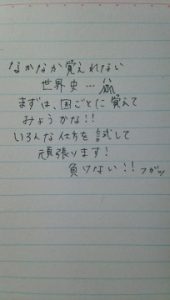 なかなか覚えれない
世界史…
まずは、国ごとに覚えて
みようかな!!
いろんな仕方を試して
頑張ります!
負けない!!フガッ